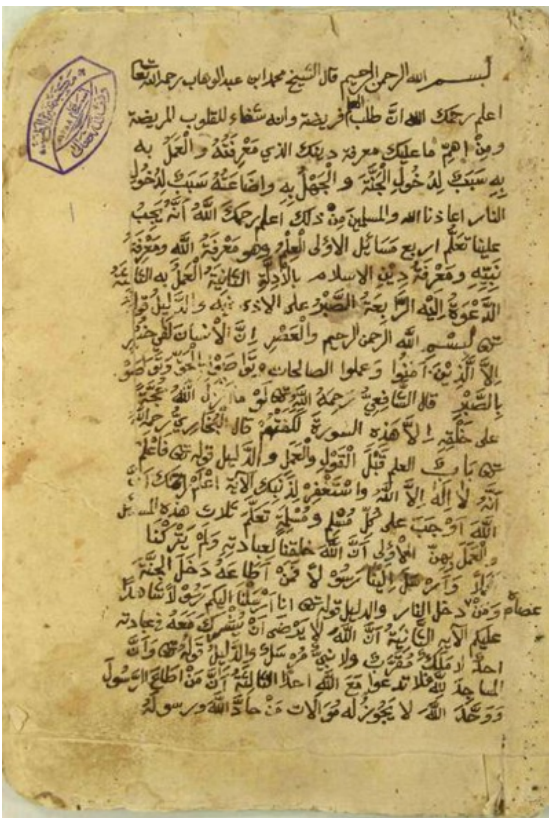 بسم الله الرحمن الرحيم قال الشيخ محمد ابن عبد الوهاب رحمه الله تعا
اعلم رحمك الله انَّ طلب العلم فريضة وانه شفاء للقلوب المريضة
ومِنْ اهمّ ما عليك معرفة دينك الذي مَعْرِفَتُهُ وَالْعَمَلُ به
به سَبَبٌ لِدُخُولِ الْجَنَّةِ وَالْجَهْلُ بِهِ وَاضَاعَتُهُ سَبَبٌ لِدُخُولِ
النار اعاذنا الله والمسلمين مِنْ ذلك اعلم رحمكَ اللهُ اَنَّهُ يَجِبُ
علينا تَعَلُّمُ اربع مَسَائِلَ الاوْلى العِلْمُ وهو مَعْرِفَةُ اللهِ ومَعْرِفَةُ
نَبِيّهِ ومَعْرِفَةُ دِينِ الاسلام بالاَدِلَّةِ الثَّانِيَةُ الْعَمَلُ به الثَّالِثَةُ
الدَّعْوَةُ اِلَيْهِ الرَّابِعَةُ الصَّبْرُ على الاذى فيه والدَّلِيلُ قوله
تعالى بسم الله الرحمن الرحيم وَالْعَصْرِ اِنَّ الْاِنْسَانَ لَفِي خُسْرٍ
اِلاَّ الَّذِينَ آمَنُوا وَعملوا الصالحات وتَوَاصَوْا بِالْحَقِّ وتَوَاصَوْ
بِالصَّبْرِ قال الشَّافِعِيُّ رَحِمَهُ اللهُ تعالى لَوْ مَا اَنْزَلَ اللهُ حُجَّةً
على خَلْقِهِ اِلاَّ هذه السورةَ لَكَفَتْهُمْ قال الْبُخَارِيُّ رحمه الله
تعالى بَابٌ العلم قَبْلَ الْقَوْلِ وَالْعَمَلِ والدَّليل قوله تعالى فَاعْلَمْ
اَنَّهُ لاَ اِلَهَ اِلاَّ اللهُ وَاسْتَغْفِرْ لِذَنْبِكَ الآيَةَ اِعْلَمْ رحمك اَنَّ
اللهَ اَوْجَبَ على كُلِّ مُسْلِمٍ ومُسْلِمَةٍ تَعَلُّمَ ثلاث هذه المسائل
وَالْعَمَلَ بِهِنَّ الْاُوْلى اَنَّ اللهَ خلقنا لعبادته وَلَمْ يَتْرُكْنَا
وَاَرْسَلَ اِلَيْنَا رَسُوْلاً فَمَنْ اَطَاعَهُ دَخَلَ الْجَنَّةَ
وَمَنْ عصاه دخل النار والدليل قوله تعالى انا اَرْسَلْنَا اليكم رسولا شاهدًا
عليكم الآيه الثَّانِيَةُ اَنَّ اللهَ لا يَرْضى اَنْ يُشْرَكَ مَعَهُ في عبادته
احدٌ لا مَلَكٌ مُقَرَّبٌ ولا نبيٌّ مُرْسَلٌ والدَّليلُ قولُهُ تعالى وَاَنَّ
المساجدَ لِلهِ فَلا تدعوا مَعَ اللهِ احدًا الثالثةُ اَنَّ مَنْ اطاعَ الرَّسُولَ
وَوَحَّدَ اللهَ لا يَجُوزُ له مُوَالات مَنْ حَادَّ اللهَ ورسولهُ